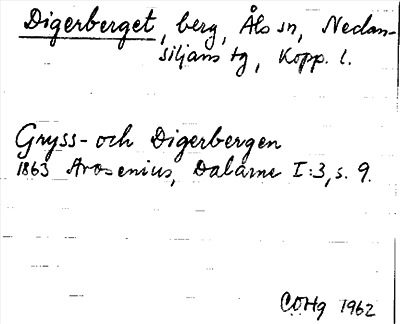 Digerberget, berg, Åls sn, Nedan-
siljans tg, Kopp. l.
Gryss- och Digerbergen
1863 Arosenius, Dalarne I:3, s. 9.
COHg 1962